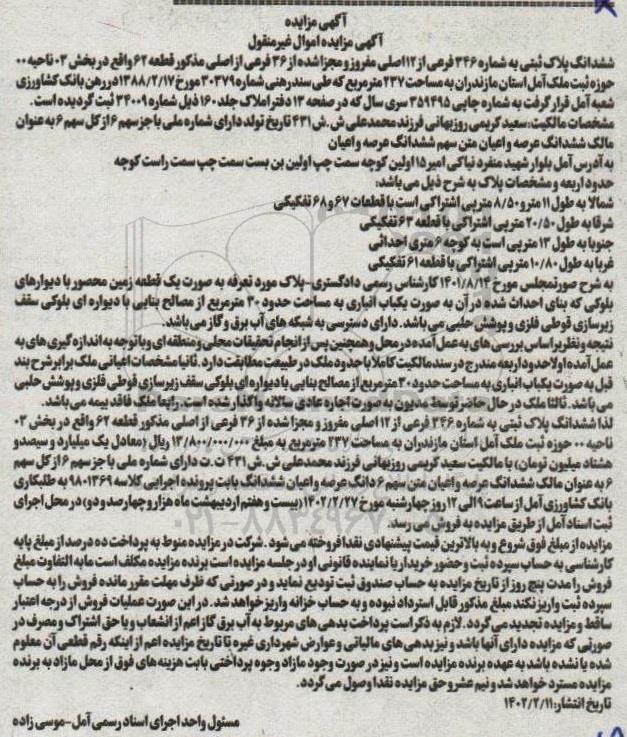 آگهی مزایده
آگهی مزایده اموال غیرمنقول
ششدانگ پلاک ثبتی به شماره ۳۴۶ فرعی از ۱۲ اصلی مفروز و مجزا شده از ۳۶ فرعی از اصلی مذکور قطعه ۶۲ واقع در بخش ۰۳ ناحیه ۰۰
حوزه ثبت ملک آمل استان مازندران به مساحت ۲۳۷ مترمربع که طی سند رهنی شماره ۳۰۳۷۹ مورخ ۱۳۸۸/۲/۱۷ در رهن بانک کشاورزی
شعبه آمل قرار گرفت به شماره چاپی ۳۵۹۴۹۵ سری سال که در صفحه ۱۳ دفتر املاک جلد ۱۶۰ ذیل شماره ۳۴۰۰۹ ثبت گردیده است.
مشخصات مالکیت: سعید کریمی روزبهانی فرزند محمدعلی ش.ش ۴۳۱ تاریخ تولد دارای شماره ملی با جز سهم ۶ از کل سهم ۶ به عنوان
مالک ششدانگ عرصه و اعیان متن سهم ششدانگ عرصه و اعیان
به آدرس آمل بلوار شهید منفرد نیاکی امیر ۱۵ اولین کوچه سمت چپ اولین بن بست سمت چپ سمت راست کوچه
حدود اربعه و مشخصات پلاک به شرح ذیل می باشد:
شمالا به طول ۱۱ متر و ۸/۵۰ متر پی اشتراکی است با قطعات ۶۷ و ۶۸ تفکیکی
شرقا به طول ۲۰/۵۰ متر پی اشتراکی با قطعه ۶۳ تفکیکی
جنوبا به طول ۱۳ متر پی است به کوچه ۶ متری احداثی
غربا به طول ۱۰/۸۰ متر پی اشتراکی با قطعه ۶۱ تفکیکی
به شرح صورتمجلس مورخ ۱۴۰۱/۸/۱۴ کارشناس رسمی دادگستری-پلاک مورد تعرفه به صورت یک قطعه زمین محصور با دیوارهای
بلوکی که بنای احداث شده در آن به صورت یکباب انباری به مساحت حدود ۳۰ مترمربع از مصالح بنایی با دیواره ای بلوکی سقف
زیرسازی قوطی فلزی و پوشش حلبی می باشد. دارای دسترسی به شبکه های آب برق و گاز می باشد.
نتیجه و نظر براساس بررسی های به عمل آمده در محل و همچنین پس از انجام تحقیقات محلی و منطقه ای و با توجه به اندازه گیری های به
عمل آمده اولا حدود اربعه مندرج در سند مالکیت کاملا با حدود ملک در طبیعت مطابقت دارد. ثانیا مشخصات اعیانی ملک برابر شرح بند
قبل به صورت یکباب انباری به مساحت حدود ۳۰ مترمربع از مصالح بنایی با دیواره ای بلوکی سقف زیرسازی قوطی فلزی و پوشش حلبی
می باشد. ثالثا ملک در حال حاضر توسط مدیون به صورت اجاره عادی سالانه واگذار شده است. رابعا ملک فاقد بیمه می باشد.
لذا ششدانگ پلاک ثبتی به شماره ۳۴۶ فرعی از ۱۲ اصلی مفروز و مجزا شده از ۳۶ فرعی از اصلی مذکور قطعه ۶۲ واقع در بخش ۰۳
ناحیه ۰۰ حوزه ثبت ملک آمل استان مازندران به مساحت ۲۳۷ مترمربع به مبلغ ۱۳/۸۰۰/۰۰۰/۰۰۰ ریال (معادل یک میلیارد و سیصد و
هشتاد میلیون تومان) با مالکیت سعید کریمی روزبهانی فرزند محمدعلی ش.ش ۴۳۱ ت.ت دارای شماره ملی با جز سهم ۶ از کل سهم
۶ به عنوان مالک ششدانگ عرصه واعیان متن سهم ۶ دانگ عرصه و اعیان ششدانگ بابت پرونده اجرایی کلاسه ۹۸۰۱۳۶۹ به طلبکاری
بانک کشاورزی آمل از ساعت ۹ الی ۱۲ روز چهارشنبه مورخ ۱۴۰۲/۲/۲۷ (بیست و هفتم اردیبهشت ماه هزار و چهارصد و دو) در محل اجرای
ثبت اسناد آمل از طریق مزایده به فروش می رسد.
مزایده از مبلغ فوق شروع و به بالاترین قیمت پیشنهادی نقدا فروخته می شود. شرکت در مزایده منوط به پرداخت ده درصد از مبلغ پایه
کارشناسی به حساب سپرده ثبت و حضور خریدار یا نماینده قانونی او در جلسه مزایده است برنده مزایده مکلف است مابه التفاوت مبلغ
فروش را مدت پنج روز از تاریخ مزایده به حساب صندوق ثبت تودیع نماید و در صورتی که ظرف مهلت مقرر مانده فروش را به حساب
سپرده ثبت واریز نکند مبلغ مذکور قابل استرداد نبوده و به حساب خزانه واریز خواهد شد. در این صورت عملیات فروش از درجه اعتبار
ساقط و مزایده تجدید می گردد. لازم به ذکر است پرداخت بدهی های مربوط به آب برق گاز اعم از انشعاب و یا حق اشتراک و مصرف در
صورتی که مزایده دارای آنها باشد و نیز بدهی های مالیاتی و عوارض شهرداری غیره تا تاریخ مزایده اعم از اینکه رقم قطعی آن معلوم
شده یا نشده باشد به عهده برنده مزایده است و نیز در صورت وجود مازاد وجوه پرداختی بابت هزینه های فوق از محل مازاد به برنده
مزایده مسترد خواهد شد و نیم عشر و حق مزایده نقدا وصول می گردد.
تاریخ انتشار: ۱۴۰۲/۲/۱۱
مسئول واحد اجرای اسناد رسمی آمل-موسی زاده